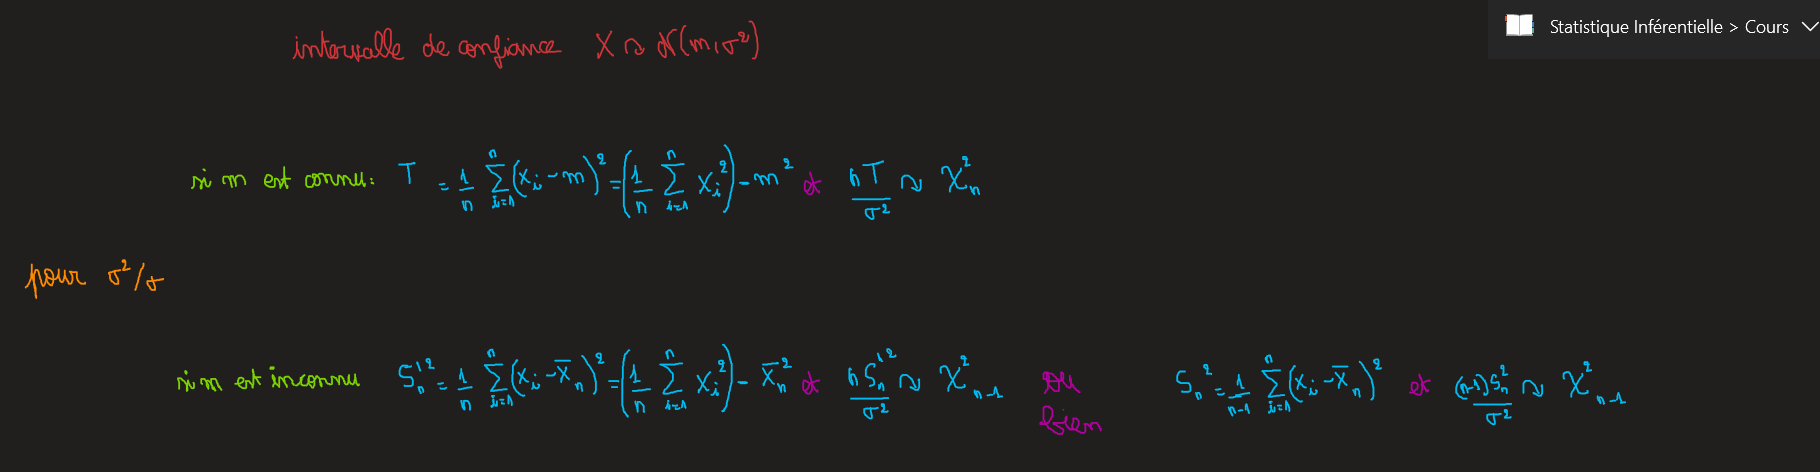 Statistique Inférentielle > Cours
intervalle de confiance X ↝ N(m, σ²)
si m est connu: T = 1/n ∑_{i=1}^{n} (x_i - m)² = (1/n ∑_{i=1}^{n} x_i²) - m² et nT/σ² ↝ χ²_n
pour σ²/σ
si m est inconnu S'²_n = 1/n ∑_{i=1}^{n} (x_i - x̄_n)² = (1/n ∑_{i=1}^{n} x_i²) - x̄_n² et nS'²_n/σ² ↝ χ²_{n-1} ou bien S²_n = 1/(n-1) ∑_{i=1}^{n} (x_i - x̄_n)² et (n-1)S²_n/σ² ↝ χ²_{n-1}